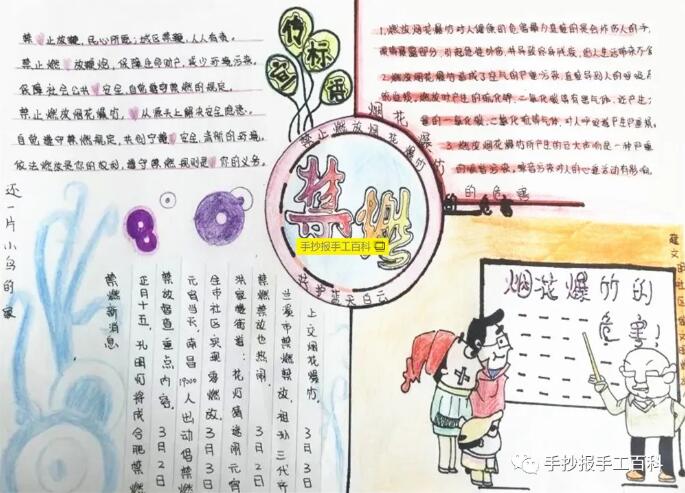 宣竹标语
禁止放鞭，民心所愿；城区禁鞭，人人有责。
禁止燃放鞭炮，保障生命财产，减少环境污染。
保障社会公共安全，自觉遵守禁燃的规定。
禁止燃放烟花爆竹，从源头上解决安全隐患。
自觉遵守禁燃规定，共创宁静安全、清新的环境。
依法燃放是你的权利，遵守禁燃规则是你的义务。
还一片小鸟的家
烟花爆竹的危害
1.燃放烟花爆竹对人健康的危害最为直接的是会炸伤人的手、
2.燃放烟花爆竹造成了空气的严重污染，直接导致人的呼吸系
3.燃放烟花爆竹所产生的巨大声响是一种严重
的噪音污染，噪音污染对人的心脏活动有影响。
禁止燃放烟花爆竹
禁燃
手抄报手工百科
还城蓝天白云
禁燃新消息
正月十五，孔明灯将成合肥禁燃
3月2日
禁放督查重点内容。
元宵当天，南昌19000人出动倡禁燃
3月2日
住市社区实现零燃放。
3月3日
花灯猜谜闹元宵
禁燃禁放也热闹。
3月2日
兰溪市禁燃禁放
祖孙三代齐
上交烟花爆竹。
3月3日
烟花爆竹的
危害！
手抄报手工百科